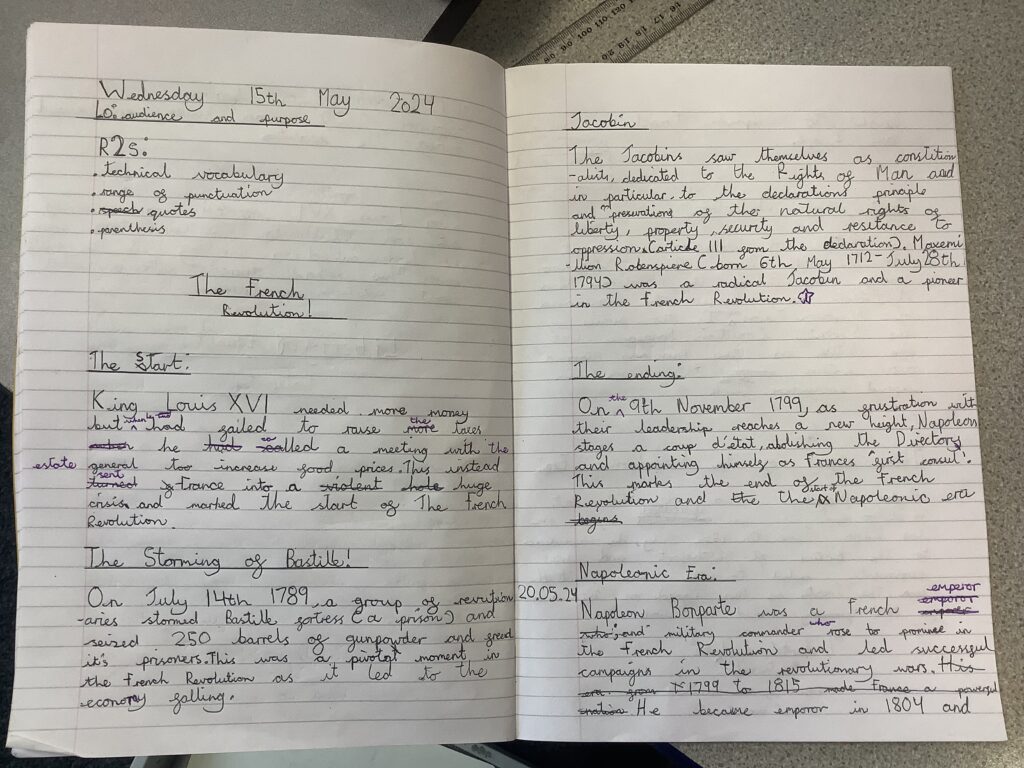 Wednesday 15th May 2024
Lo: audience and purpose
R2s:
• technical vocabulary
• range of punctuation
• speech quotes
• parenthesis
The French
Revolution!
The Start:
King Louis XVI needed more money
but had failed to raise the more taxes
he had called a meeting with the
estate general too increase food prices. This instead
sent turned France into a violent hole huge
crisis, and marked the start of The French
Revolution.
The Storming of Bastille!
On July 14th 1789, a group of revoution
-aries stormed Bastille fortress (a prison) and
seized 250 barrels of gunpowder and freed
it's prisoners. This was a pivotal moment in
the French Revolution as it led to the
economy falling.
Jacobin
The Jacobins saw themselves as constition
-alists, dedicated to the Rights of Man and
in particular. to the declarations principle
and preservations of the natural rights of
liberty, property, security and resitance to
oppression. (article III from the declaration). Maxemi
-llion Robenspiere (born 6th May 1712-July 28th
1794) was a radical Jacobin and a pioneer
in the French Revolution.
The ending:
On the 9th November 1799, as frustration with
their leadership reaches a new height, Napoleon
stages a coup d'état, abolishing the Directory
and appointing himself as Frances 'first consul'.
This marks the end of the French
Revolution and the the start of Napoleonic era
begins
20.05.24
Napoleonic Era:
emperor
emperor
Napoleon Bonparte was a French emperor
"who" and" military commander who rose to promise in
the French Revolution and led successful
campaigns in the revolutionary wars. His
era from 1799 to 1815 made France a powerful
nation He became emperor in 1804 and